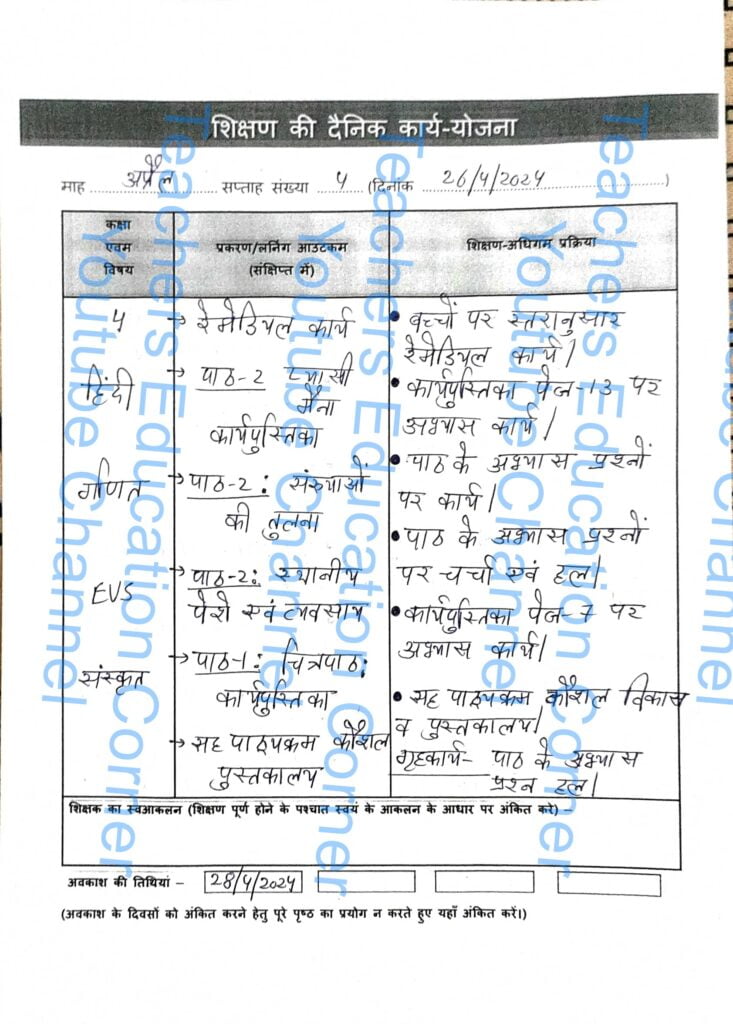 शिक्षण की दैनिक कार्य-योजना
माह अप्रैल सप्ताह संख्या 4 (दिनांक 26/4/2024)
कक्षा एवम विषय
प्रकरण/लर्निंग आउटकम (संक्षिप्त में)
शिक्षण-अधिगम प्रक्रिया
4
हिंदी
गणित
EVS
संस्कृत
→ रेमेडियल कार्य
→ पाठ-2 प्यासी
मैना
कार्यपुस्तिका
→ पाठ-2: संख्याओं
की तुलना
→ पाठ-2: स्थानीय
पेशे एवं व्यवसाय
→ पाठ-1: चित्रपाठ:
कार्यपुस्तिका
→ सह पाठ्यक्रम कौशल
पुस्तकालय
• बच्चों पर स्तरानुसार
रेमेडियल कार्य।
• कार्यपुस्तिका पेज-13 पर
अभ्यास कार्य।
• पाठ के अभ्यास प्रश्नों
पर कार्य।
• पाठ के अभ्यास प्रश्नों
पर चर्चा एवं हल।
• कार्यपुस्तिका पेज-7 पर
अभ्यास कार्य।
• सह पाठ्यक्रम कौशल विकास
व पुस्तकालय।
गृहकार्य- पाठ के अभ्यास
प्रश्न हल।
शिक्षक का स्वआकलन (शिक्षण पूर्ण होने के पश्चात स्वयं के आकलन के आधार पर अंकित करे) –
अवकाश की तिथियां – 28/4/2024
(अवकाश के दिवसों को अंकित करने हेतु पूरे पृष्ठ का प्रयोग न करते हुए यहाँ अंकित करें।)
Teachers Education Corner
Youtube Channel
Teachers Education Corner
Youtube Channel
Teachers Education Corner
Youtube Channel